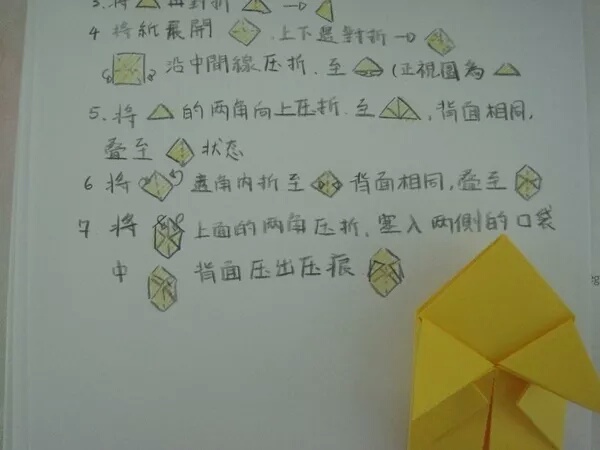 3.将 再對折 →
4 将紙展開 ,上下邊對折→
沿中間線压折.至 (正視图為
5.将 的两角向上压折.至 ,背面相同,
叠至 状态
6 将 边角内折至 背面相同,叠至
7 将 上面的两角压折,塞入两側的口袋
中 背面压出压痕.